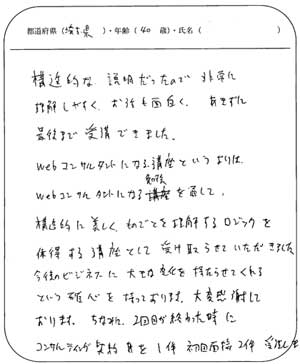 都道府県(埼玉県)・年齢(40 歳)・氏名( )
構造的な 説明だったので 非常に
理解しやすく、お話も面白く、あきずに
最後まで 受講できました。
webコンサルタントになる講座というよりは、
webコンサルタントになる勉強を通して、
構造的に 美しく、ものごとを理解するロジックを
体得する講座として 受け取らせていただきました
今後のビジネスに 大きな変化を 持たらせてくれる
という 確信を 持っております。大変感謝して
おります。ちなみに、2回目が終わった時に
コンサルティング契約を1件 初回面接2件 受注しま